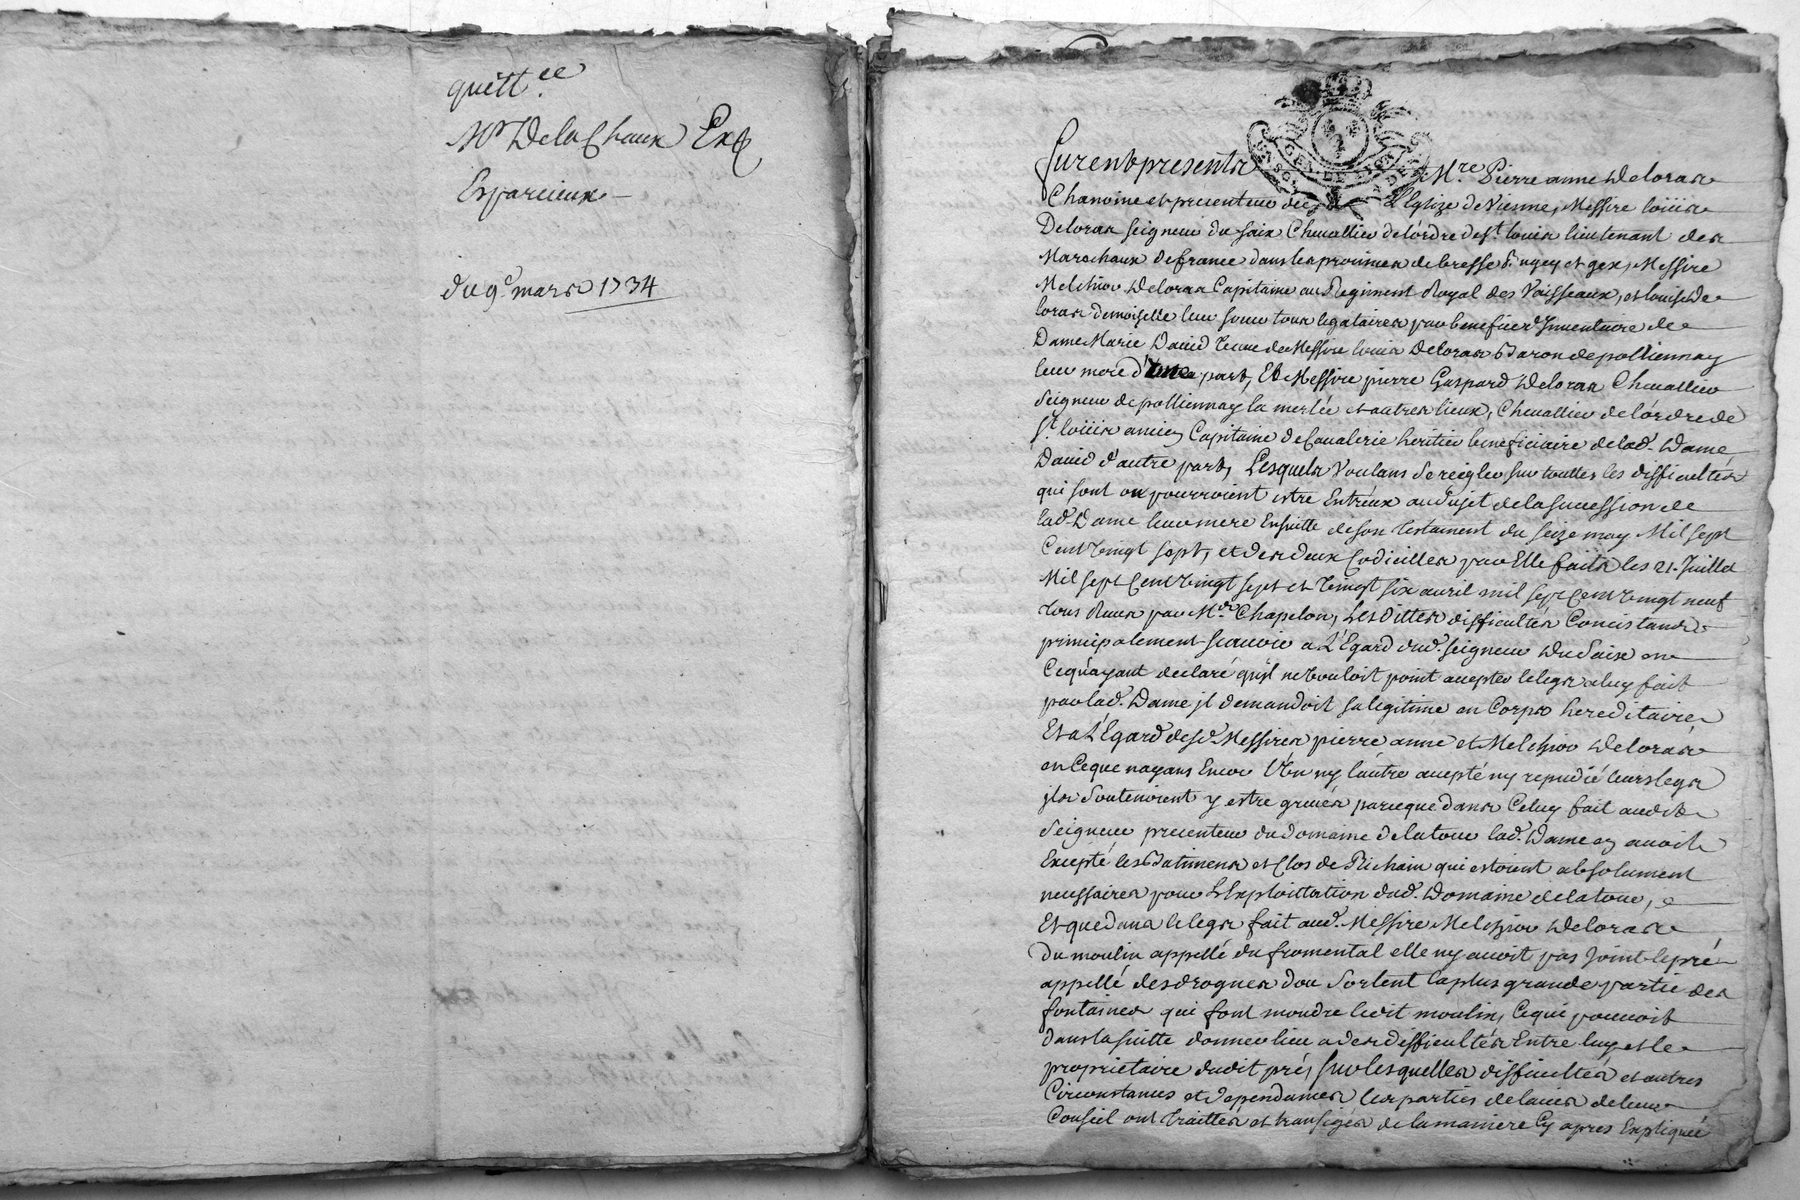 quitt.ce
Mr Delachaux Et
Exparcieux
du 9e mars 1734
GEN. DE
Furent presents Mre Pierre anne Deloras
Chanoine et precenteur de L'Eglize de Vienne, Messire loüis
Deloras seigneur du saix Chevallier de l'ordre de st. louis lieutenant des
Marechaux de france dans les provinces de bresse bugey et gex, Messire
Melchior Deloras Capitaine au Regiment Royal des Vaisseaux, et louise De
loras demoiselle leur soeur tous legataires par benefice d'Inventaire de
Dame Marie David veuve de Messire louis Deloras Baron de polliennay
leur mere d'Une part, Et Messire pierre Gaspard Deloras Chevallier
Seigneur de polliennay la merlée et autres lieux, Chevallier de l'ordre de
st. loüis ancien Capitaine de Cavalerie heritier beneficiaire de lad. Dame
David d'autre part, Lesquels Voulans se reigler sur touttes les difficultés
qui sont ou pourroient estre Entréux au sujet de la sucession de
lad. Dame leur mere Ensuitte de son testament du seize may Mil sept
Cent vingt sept, et des deux Codicilles par Elle faits les 21. Juillet
Mil sept Cent vingt sept et vingt six avril mil sept Cent vingt neuf
tous Reçus par Me. Chapelon, Les dittes difficultés Concistans
principalement scavoir a L'Egard dud. seigneur Du Saix en
Ce qu'ayant declaré qu'il ne vouloit point accepter le legs a luy fait
par lad. Dame il demandoit sa legitime en Corps hereditaires
Et a L'Egard desd. Messires pierre anne et Melchior Deloras
en Ce que nayans Encor l'Un ny l'autre accepté ny repudié leurs legs
ils soutenoient y estre grevés parceque dans Celuy fait audit
Seigneur precenteur du domaine de latour lad. Dame en avoit
Excepté les Batimens et Clos de Richain qui estoient absolument
necessaires pour L'Exploittation dud. Domaine de latour,
Et que dans le legs fait aud. Messire Melchior Deloras
Du moulin appellé du fromental elle n'y avoit pas Joint le pré
appellé des drognes d'ou sortent la plus grande partie des
fontaines qui font moudre ledit moulin, Ce qui pouvoit
dans la suitte donner lieu a des difficultés Entre luy et le
proprietaire dudit pré, sur lesquelles difficultés et autres
Circonstances et dependances les parties de l'avis de leur
Conseil ont traittés et transigés de la maniere Cy apres Expliquée